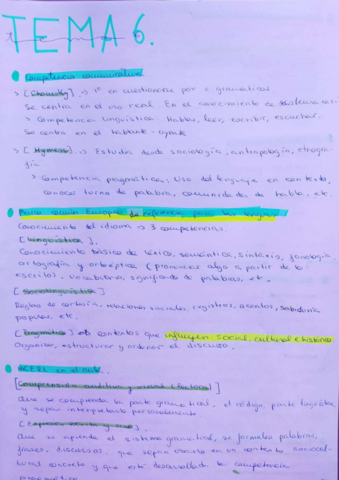 TEMA 6.
Competencia comunicativa
→ [Chomsky] → 1º en cuestionarse por c gramatical
Se centra en el uso real. En el conocimiento de
→ Competencia lingüística. Hablar, leer, escribir, escuchar.
Se centra en el hablante - oyente
→ [Hymes] → Estudia desde sociología, antropología, etnogra-
fía
→ Competencia pragmática: Uso del lenguaje en contexto,
conoce turno de palabra, comunidades de habla, etc.
Marco común europeo de referencia para las lenguas
Conocimiento del idioma → 3 competencias.
[Lingüística],
Conocimiento básico de léxico, semántica, sintaxis, fonología
ortografía y ortoépica (pronunciar algo a partir de lo
escrito). Vocabulario, significado de palabras, etc.
[Sociolingüística]
Reglas de cortesía, relaciones sociales, registros, acentos, sabiduría
popular, etc.
[Pragmática] contextos que influyen social, cultural e histórico
Organizar, estructurar y ordenar el discurso.
MCERL en el aula.
[Comprensión auditiva y escrita]
Que se comprenda la parte gramatical, el código, parte
y sepan interpretarlo
[Expresión escrita y oral]
Que se aprenda el sistema gramatical, se formulen palabras,
frases, discursos, que sepan usarlo en un contexto sociocul-
tural concreto y que esté desarrollada la competencia
pragmática